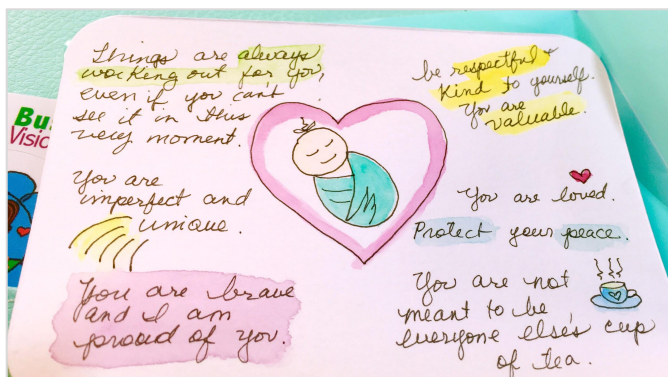 Things are always
working out for you,
even if you can't
see it in this
very moment.
You are
imperfect and
unique.
You are brave
and I am
proud of you.
be respectful +
Kind to yourself.
You are
valuable.
You are loved.
Protect your peace.
You are not
meant to be
everyone else's cup
of tea.